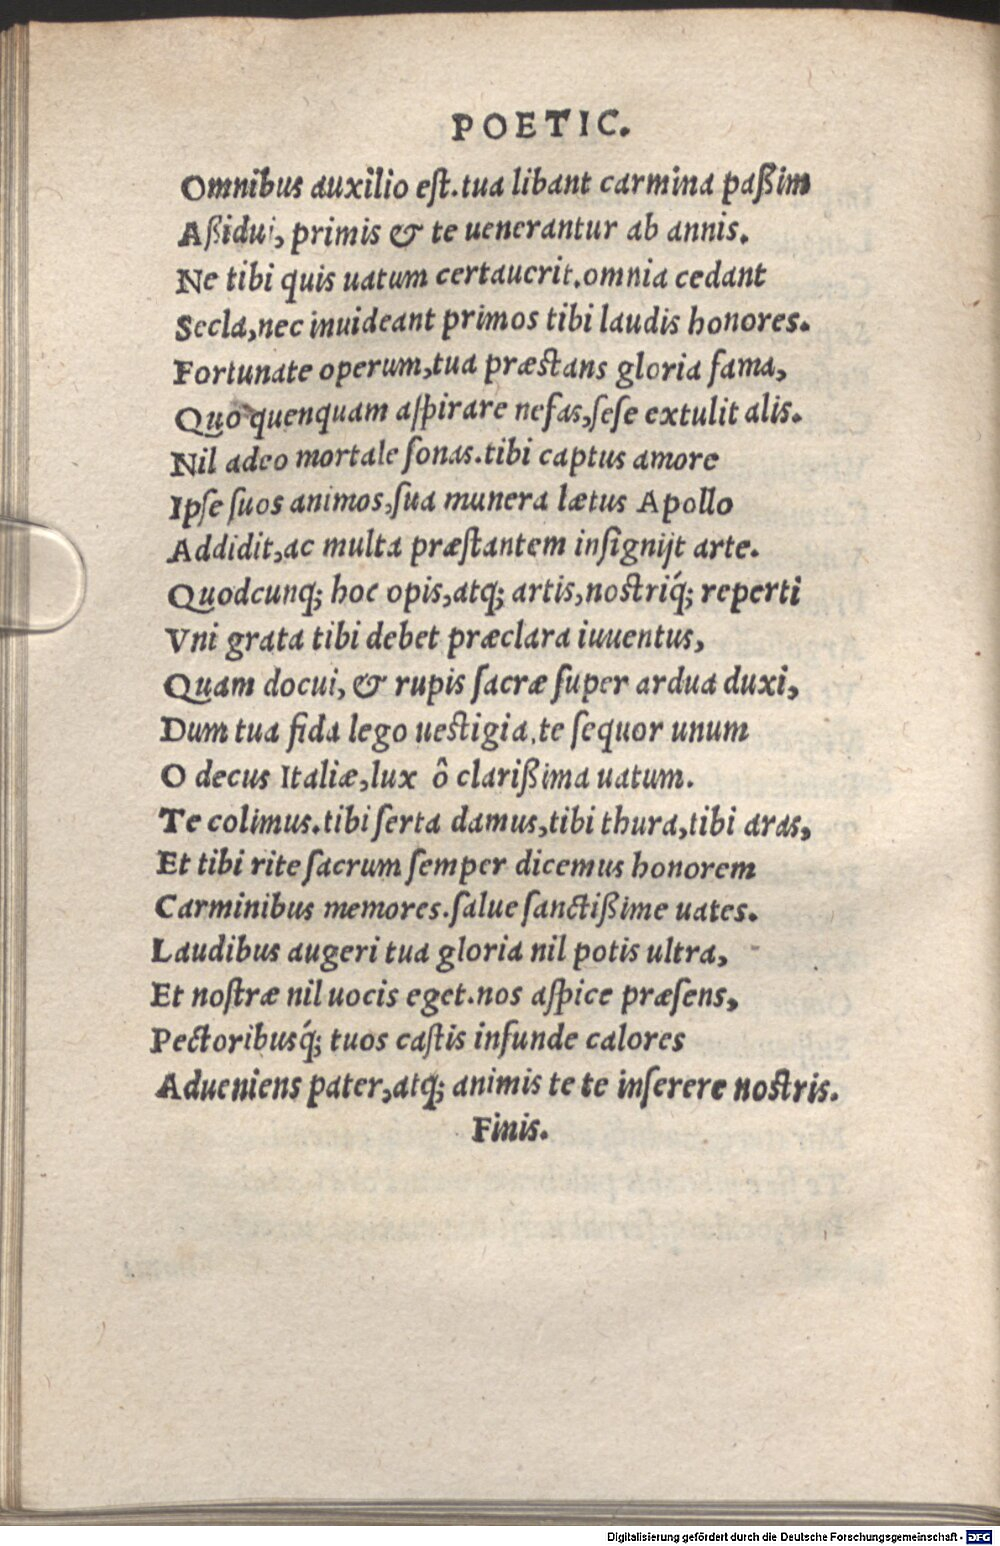 POETIC.
Omnibus auxilio est. tua libant carmina paßim
Aßidui, primis & te uenerantur ab annis.
Ne tibi quis uatum certauerit. omnia cedant
Secla, nec inuideant primos tibi laudis honores.
Fortunate operum, tua præstans gloria fama,
Quo quenquam aſpirare nefas, ſeſe extulit alis.
Nil adeo mortale ſonas. tibi captus amore
Ipſe ſuos animos, ſua munera lætus Apollo
Addidit, ac multa præſtantem inſignijt arte.
Quodcunq; hoc opis, atq; artis, nostriq́; reperti
Vni grata tibi debet præclara iuuentus,
Quam docui, & rupis ſacræ ſuper ardua duxi,
Dum tua fida lego uestigia, te ſequor unum
O decus Italiæ, lux ô clarißima uatum.
Te colimus. tibi ſerta damus, tibi thura, tibi aras,
Et tibi rite ſacrum ſemper dicemus honorem
Carminibus memores. ſalue ſanctißime uates.
Laudibus augeri tua gloria nil potis ultra,
Et noſtræ nil uocis eget. nos aſpice præſens,
Pectoribusq́; tuos caſtis infunde calores
Adueniens pater, atq; animis te te inſerere nostris.
Finis.
Digitalisierung gefördert durch die Deutsche Forschungsgemeinschaft - DFG